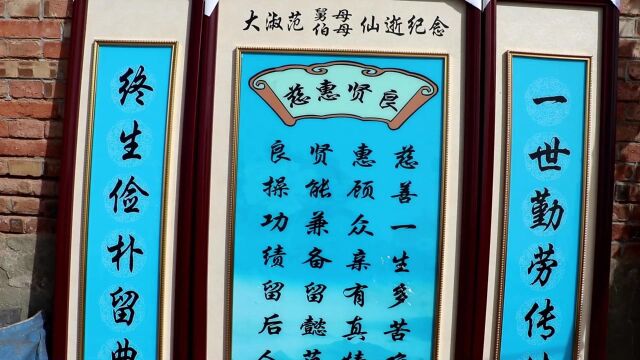 大淑范 舅母 伯母 仙逝纪念
慈惠贤良
一世勤劳传
慈善一生多苦
惠顾众亲有真情
贤能兼备留懿范
良操功绩留后人
终生俭朴留典